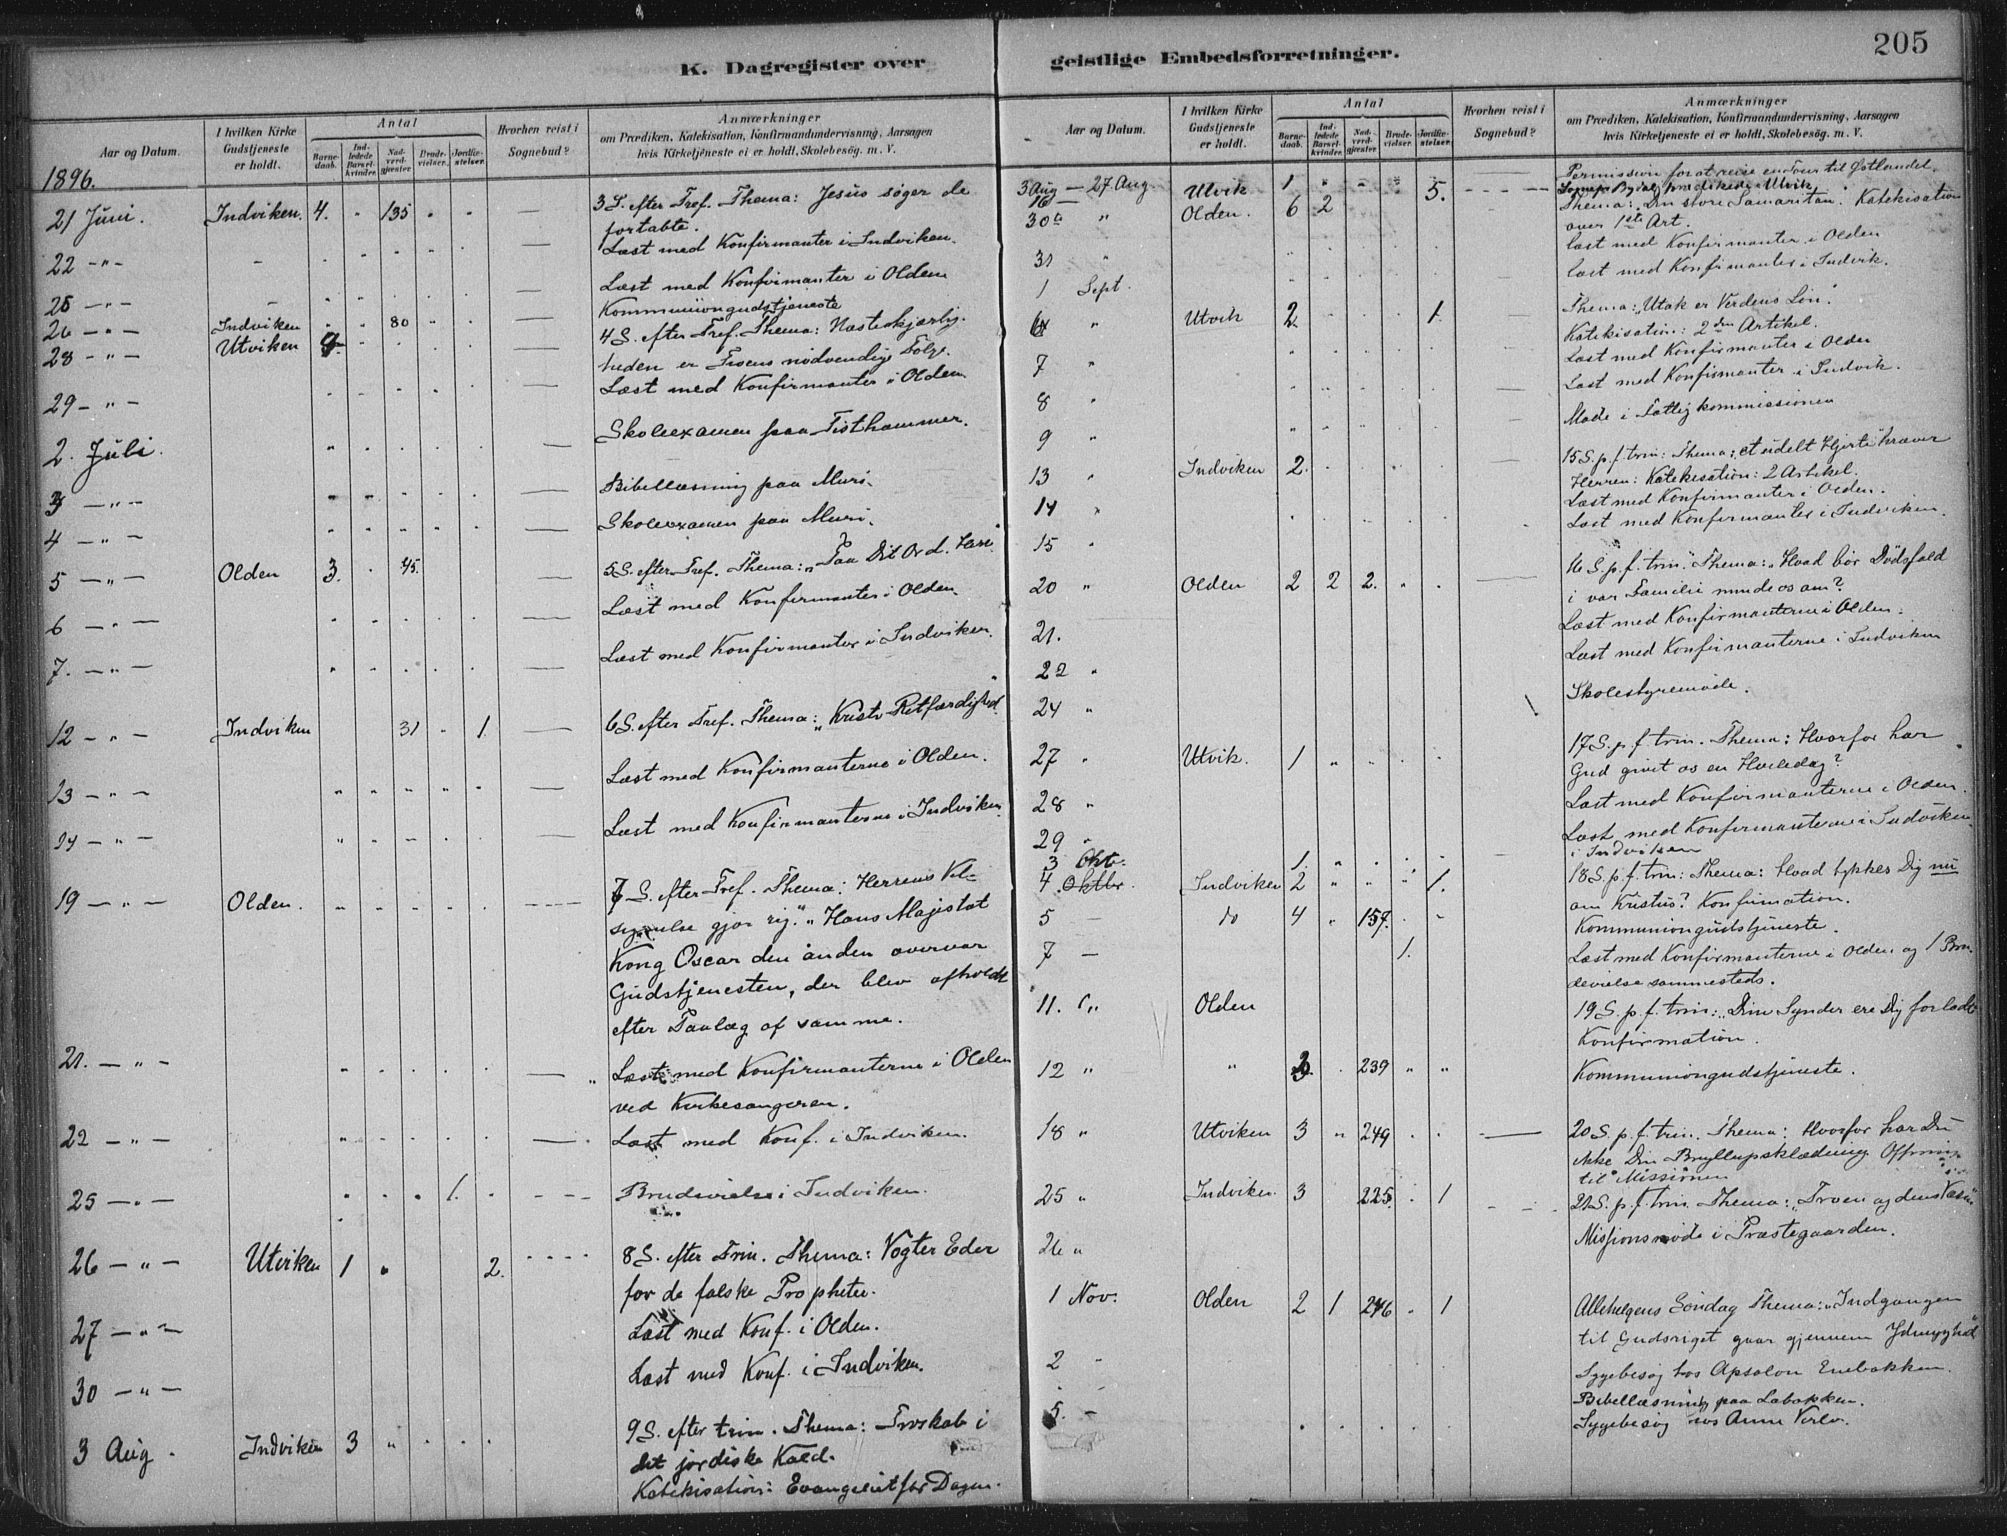 205
K. Dagregister over geistlige Embedsforretninger.
Aar og Datum.
I hvilken Kirke Gudstjeneste er holdt.
Antal
Barnedaab.
Indledede Barselkvinder.
Nadverdgjester
Brudevielser.
Jordfæstelser.
Hvorhen reist i Sognebud?
Anmærkninger
om Prædiken, Katekisation, Konfirmandundervisning, Aarsagen
hvis Kirketjeneste ei er holdt, Skolebesøg. m. V.
1896.
21 Juni. Indviken. 4. " 135 3 S. efter Tref. Thema: Jesus søger de
fortabte.
22 — " — Læst med Konfirmanter i Indviken.
25 — " — Læst med Konfirmanter i Olden
26 — " — Indviken 80 Kommuniongudstjeneste
28 — " — Utviken 4 S. efter Tref. Thema: Næstekjærlig-
heden er Troens nødvendige Følge.
29 — " — Læst med Konfirmanter i Olden
2. Juli. Skoleexamen paa Tisthammer.
3 — " — Bibellæsning paa Muri.
4 — " — Skoleexamen paa Muri.
5 — " — Olden 3. 45. 5 S. efter Tref. Thema: "Paa Dit Ord L. Herre"
6 — " — Læst med Konfirmanter i Olden
7. — " — Læst med Konfirmanter i Indviken.
12 — " — Indviken 31 " 1 6 S. efter Tref. Thema: "Kristi Retfærdighed"
13 — " — Læst med Konfirmanterne i Olden.
14 — " — Læst med Konfirmanterne i Indviken.
19 — " — Olden. 7 S. efter Tref. Thema: Herrens Vel-
signelse gjør rig." Hans Majestæt
Kong Oscar den anden overvar
Gudstjenesten, der blev afholdt
efter Paalæg af samme.
21. — " — Læst med Konfirmanterne i Olden
ved Kirkesangeren.
22 — " — Læst med Konf. i Indviken.
25 — " — 1. Brudevielse i Indviken.
26 — " — Utviken 1 " 2. 8 S. efter Trin. Thema: Vogter Eder
for de falske Propheter.
27 — " — Læst med Konf. i Olden.
30 — " — Læst med Konf. i Indviken.
3 Aug. Indviken 3 " 9 S. efter trin. Thema: Troskab i
det jordiske Kald.
Katekisation: Evangeliet for Dagen.
Aar og Datum.
I hvilken Kirke Gudstjeneste er holdt.
Antal
Barnedaab.
Indledede Barselkvinder.
Nadverdgjester
Brudevielser.
Jordfæstelser.
Hvorhen reist i Sognebud?
Anmærkninger
om Prædiken, Katekisation, Konfirmandundervisning, Aarsagen
hvis Kirketjeneste ei er holdt, Skolebesøg. m. V.
3 Aug — 27 Aug. Permission for at reise en Tour til Østlandet.
16 — Utvik 1 " " " 5. prædikede i Utvik
30 " Olden. 6 2 Thema: Den store Samaritan. Katekisation
over 1ste Art.
31 " Læst med Konfirmanter i Olden
1 Sept. Læst med Konfirmanter i Indvik.
6 " Utvik 2. 1. Thema: "Utak er Verdens Løn".
Katekisation: 2den Artikel.
7 " Læst med Konfirmanter i Olden
8 " Læst med Konfirmanter i Indvik.
9 " Møde i Fattigkommissionen
13 " Indviken 2. 15 S. p. f. trin: Thema: et udelt Hjerte kræver
Herren: Katekisation: 2 Artikel.
14 " Læst med Konfirmanter i Olden.
15 " Læst med Konfirmanter i Indviken.
20 " Olden 2 2 2. 16 S. p. f. trin. Thema: "Hvad bør Dødsfald
i vor Familie minde os om?
21. Læst med Konfirmanterne i Olden.
22 " Læst med Konfirmanterne i Indviken
24 " Skolestyremøde.
27 " Utvik. 1 17 S. p. f. trin. Thema: Hvorfor har
Gud givet os en Hviledag?
28 " Læst med Konfirmanterne i Olden.
29 " Læst med Konfirmanterne i Indviken.
3 Okt. 1. i Indviken
4 Oktbr. Indviken 2 " " " 1. 18 S. p. f. trin: Thema: Hvad tykkes Dig nu
om Kristus? Konfirmation.
5 — do 4 " 157. Kommuniongudstjeneste.
7 — 1. Læst med Konfirmanterne i Olden og 1 Bru-
devielse sammesteds.
11. " Olden 19 S. p. f. trin: "Dine Synder ere Dig forladte
Konfirmation.
12 " " 3. 239 " " Kommuniongudstjeneste.
18 " Utviken 3 " 249 20 S. p. f. trin. Thema: Hvorfor har Du
ikke Din Bryllupsklædning Offring
til Missionen
25 " Indviken. 3 225. 1 21 S. p. f. trin. Thema: "Troen og dens Væsen"
26 " Missionsmøde i Præstegaarden.
1 Nov. Olden 2 1 246 1 Allehelgens Søndag Thema: "Indgangen
til Gudsriget gaar gjennem Ydmyghed"
2 " Sygebesøg hos Apsalon
Bibellæsning paa Løbakken.
5. — Sygebesøg hos Anne